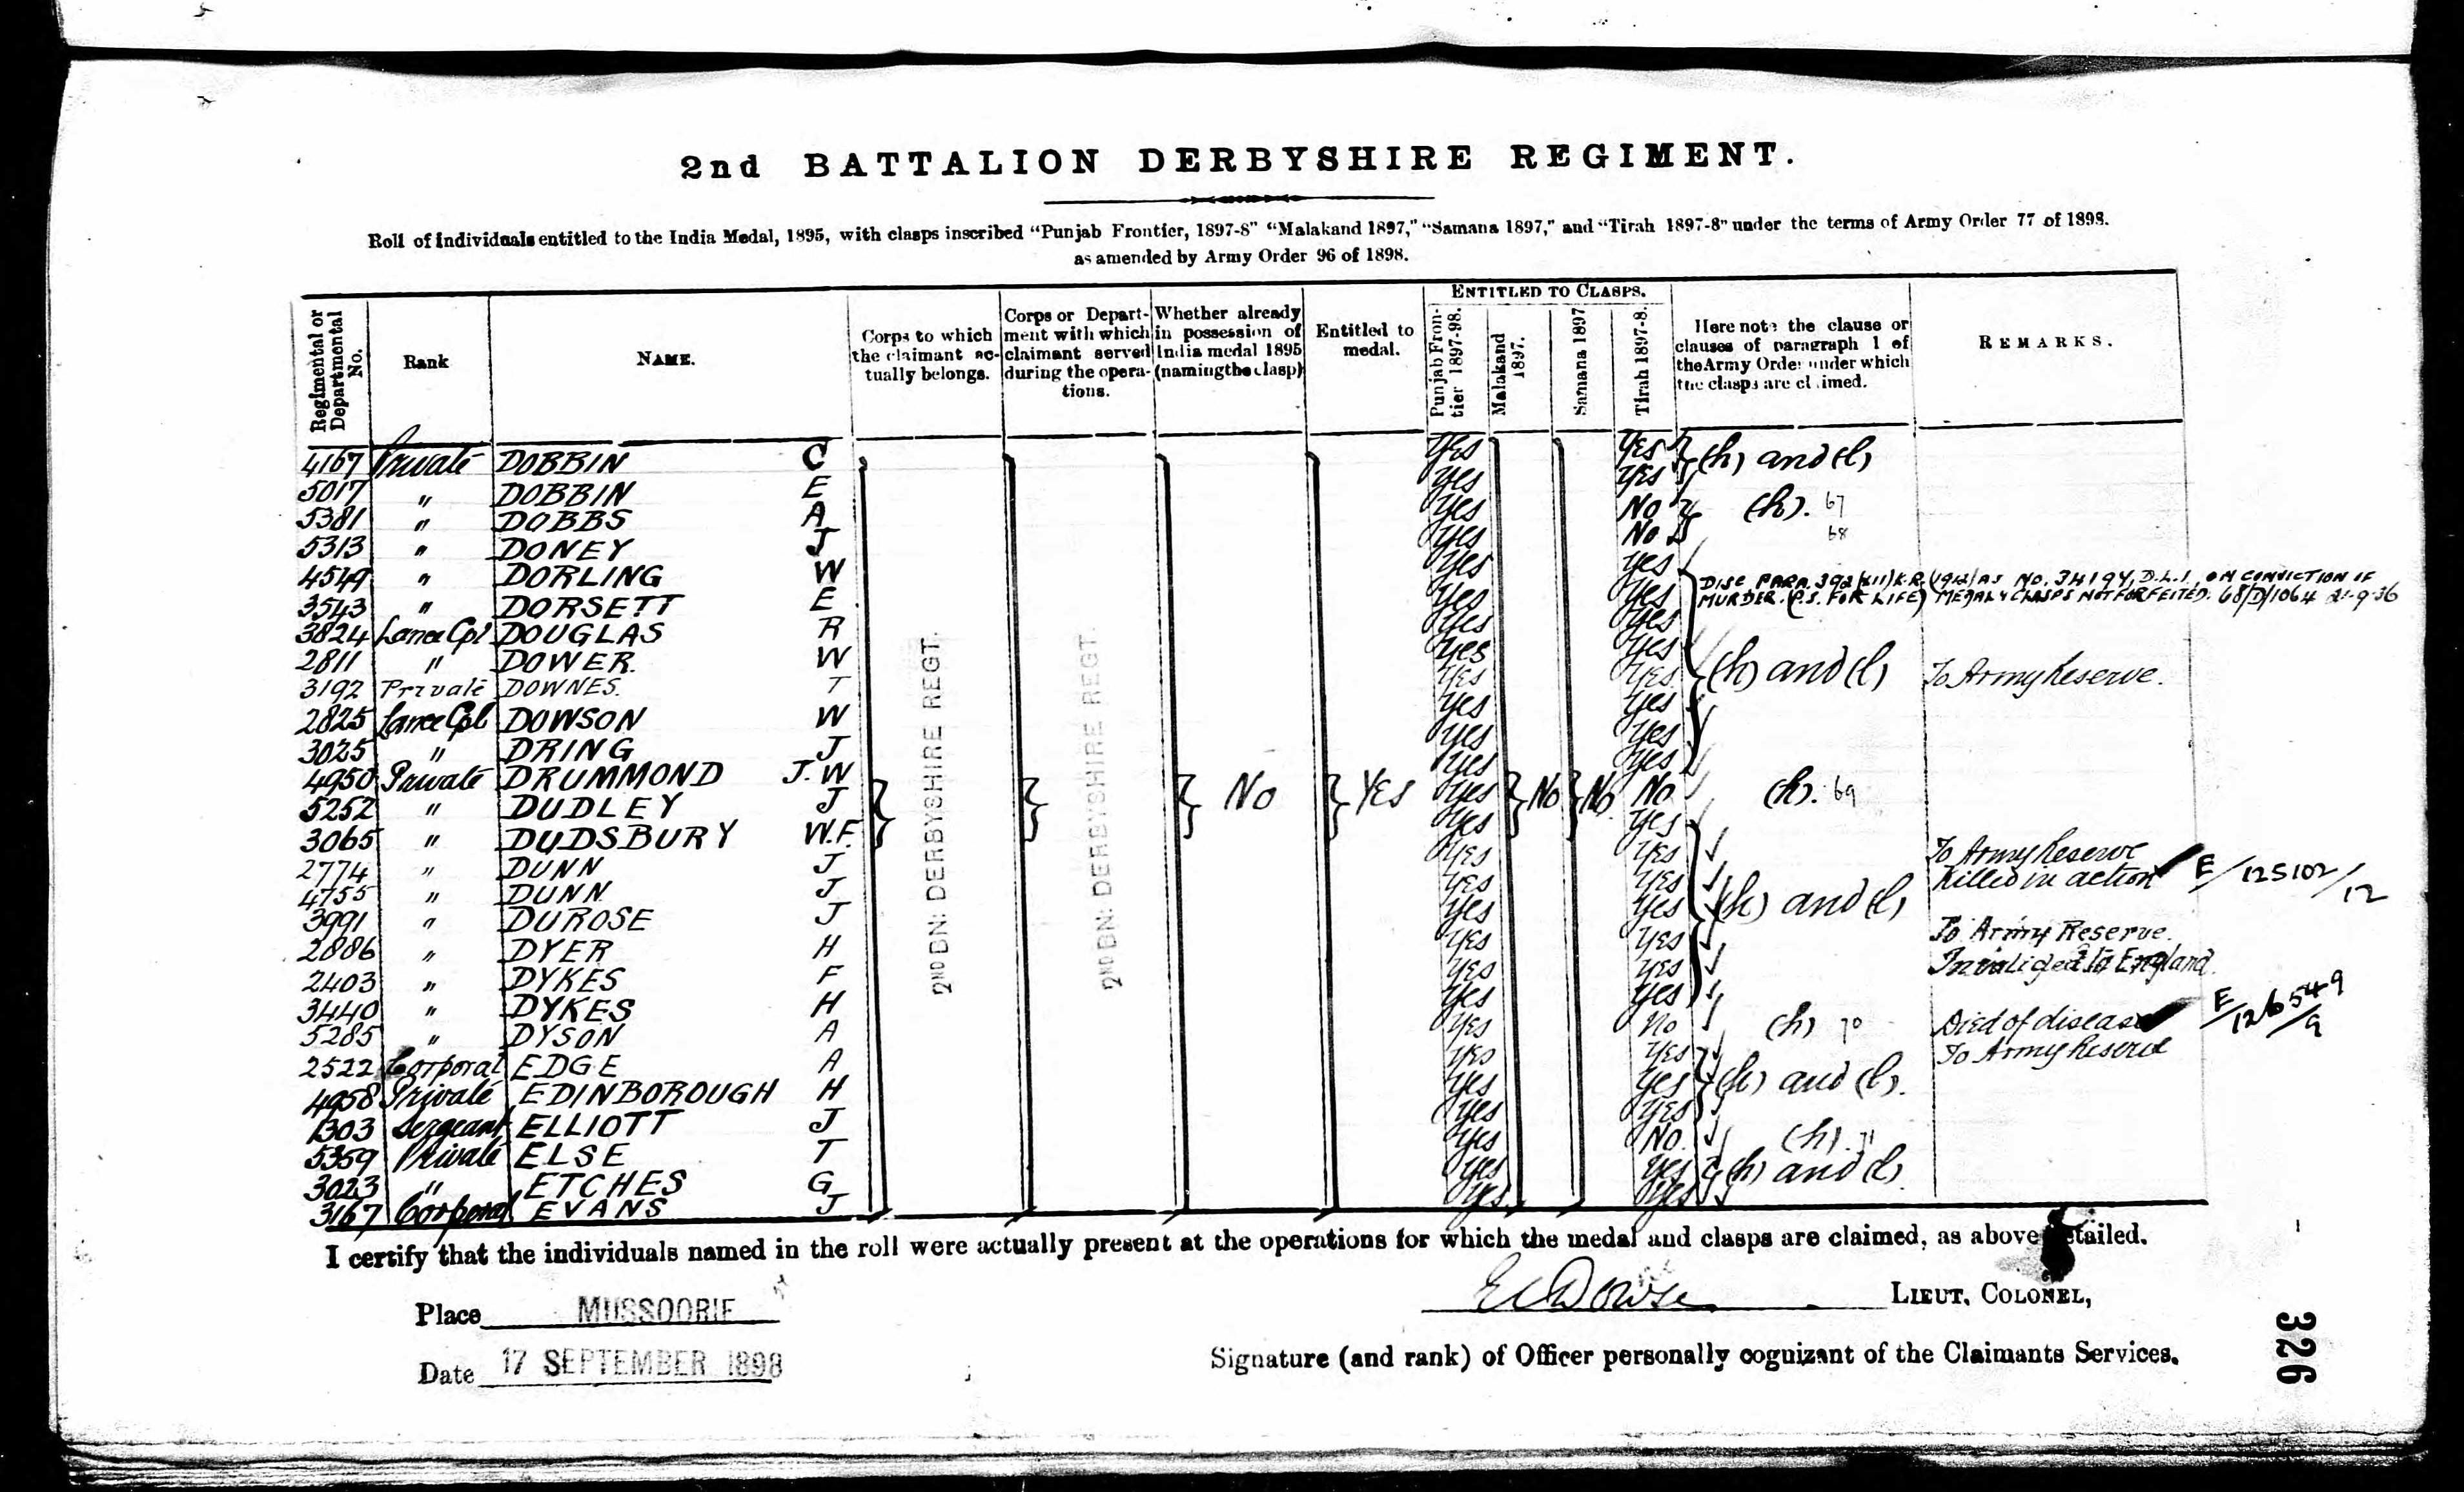 2nd BATTALION DERBYSHIRE REGIMENT.
Roll of individuals entitled to the India Medal, 1895, with clasps inscribed "Punjab Frontier, 1897-8" "Malakand 1897," "Samana 1897," and "Tirah 1897-8" under the terms of Army Order 77 of 1898.
as amended by Army Order 96 of 1898.
Regimental or Departmental No.
Rank
NAME.
Corps to which the claimant actually belongs.
Corps or Department with which claimant served during the operations.
Whether already in possession of India medal 1895 (naming the clasp)
Entitled to medal.
ENTITLED TO CLASPS.
Punjab Frontier 1897-98.
Malakand 1897.
Samana 1897
Tirah 1897-8.
Here note the clause or clauses of paragraph 1 of the Army Order under which the clasps are claimed.
REMARKS.
4167 Private DOBBIN C Yes Yes (h) and (l)
5017 " DOBBIN E Yes Yes
5381 " DOBBS A Yes No (h). 67
5313 " DONEY J Yes No 68
4549 " DORLING W Yes Yes
3543 " DORSETT E Yes Yes DISC PARA. 392 (XII) K.R. (1912) AS NO. 34194, D.L.I., ON CONVICTION OF
MURDER. (P.S. FOR LIFE) MEDAL & CLASPS NOT FORFEITED. 68/D/1064 21-9-36
3824 Lance Cpl DOUGLAS R Yes Yes
2811 " DOWER. W Yes Yes
3192 Private DOWNES. T Yes Yes (h) and (l) To Army Reserve.
2825 Lance Cpl DOWSON W Yes Yes
3025 " DRING J Yes Yes
4950 Private DRUMMOND J.W Yes Yes
5252 " DUDLEY J No Yes Yes No No No (h). 69
3065 " DUDSBURY W.F. Yes Yes
2774 " DUNN J Yes Yes To Army Reserve
4755 " DUNN. J Yes Yes Killed in action E/125102/12
3991 " DUROSE J Yes Yes (h) and (l)
2886 " DYER H Yes Yes To Army Reserve.
2403 " DYKES F Yes Yes Invalided to England.
3440 " DYKES H Yes Yes
5285 " DYSON A Yes No (h) 70 Died of disease E/126549/9
2522 Corporal EDGE A Yes Yes To Army Reserve
4958 Private EDINBOROUGH H Yes Yes (h) and (l).
1303 Sergeant ELLIOTT J Yes Yes
5359 Private ELSE T Yes No. (h). 71
3023 " ETCHES G Yes Yes (h) and (l).
3167 Corporal EVANS J Yes. Yes
2ND BN: DERBYSHIRE REGT.
2ND BN: DERBYSHIRE REGT.
I certify that the individuals named in the roll were actually present at the operations for which the medal and clasps are claimed, as above detailed.
Place MUSSOORIE
E C Dowse LIEUT. COLONEL,
Date 17 SEPTEMBER 1898
Signature (and rank) of Officer personally cognizant of the Claimants Services.
326